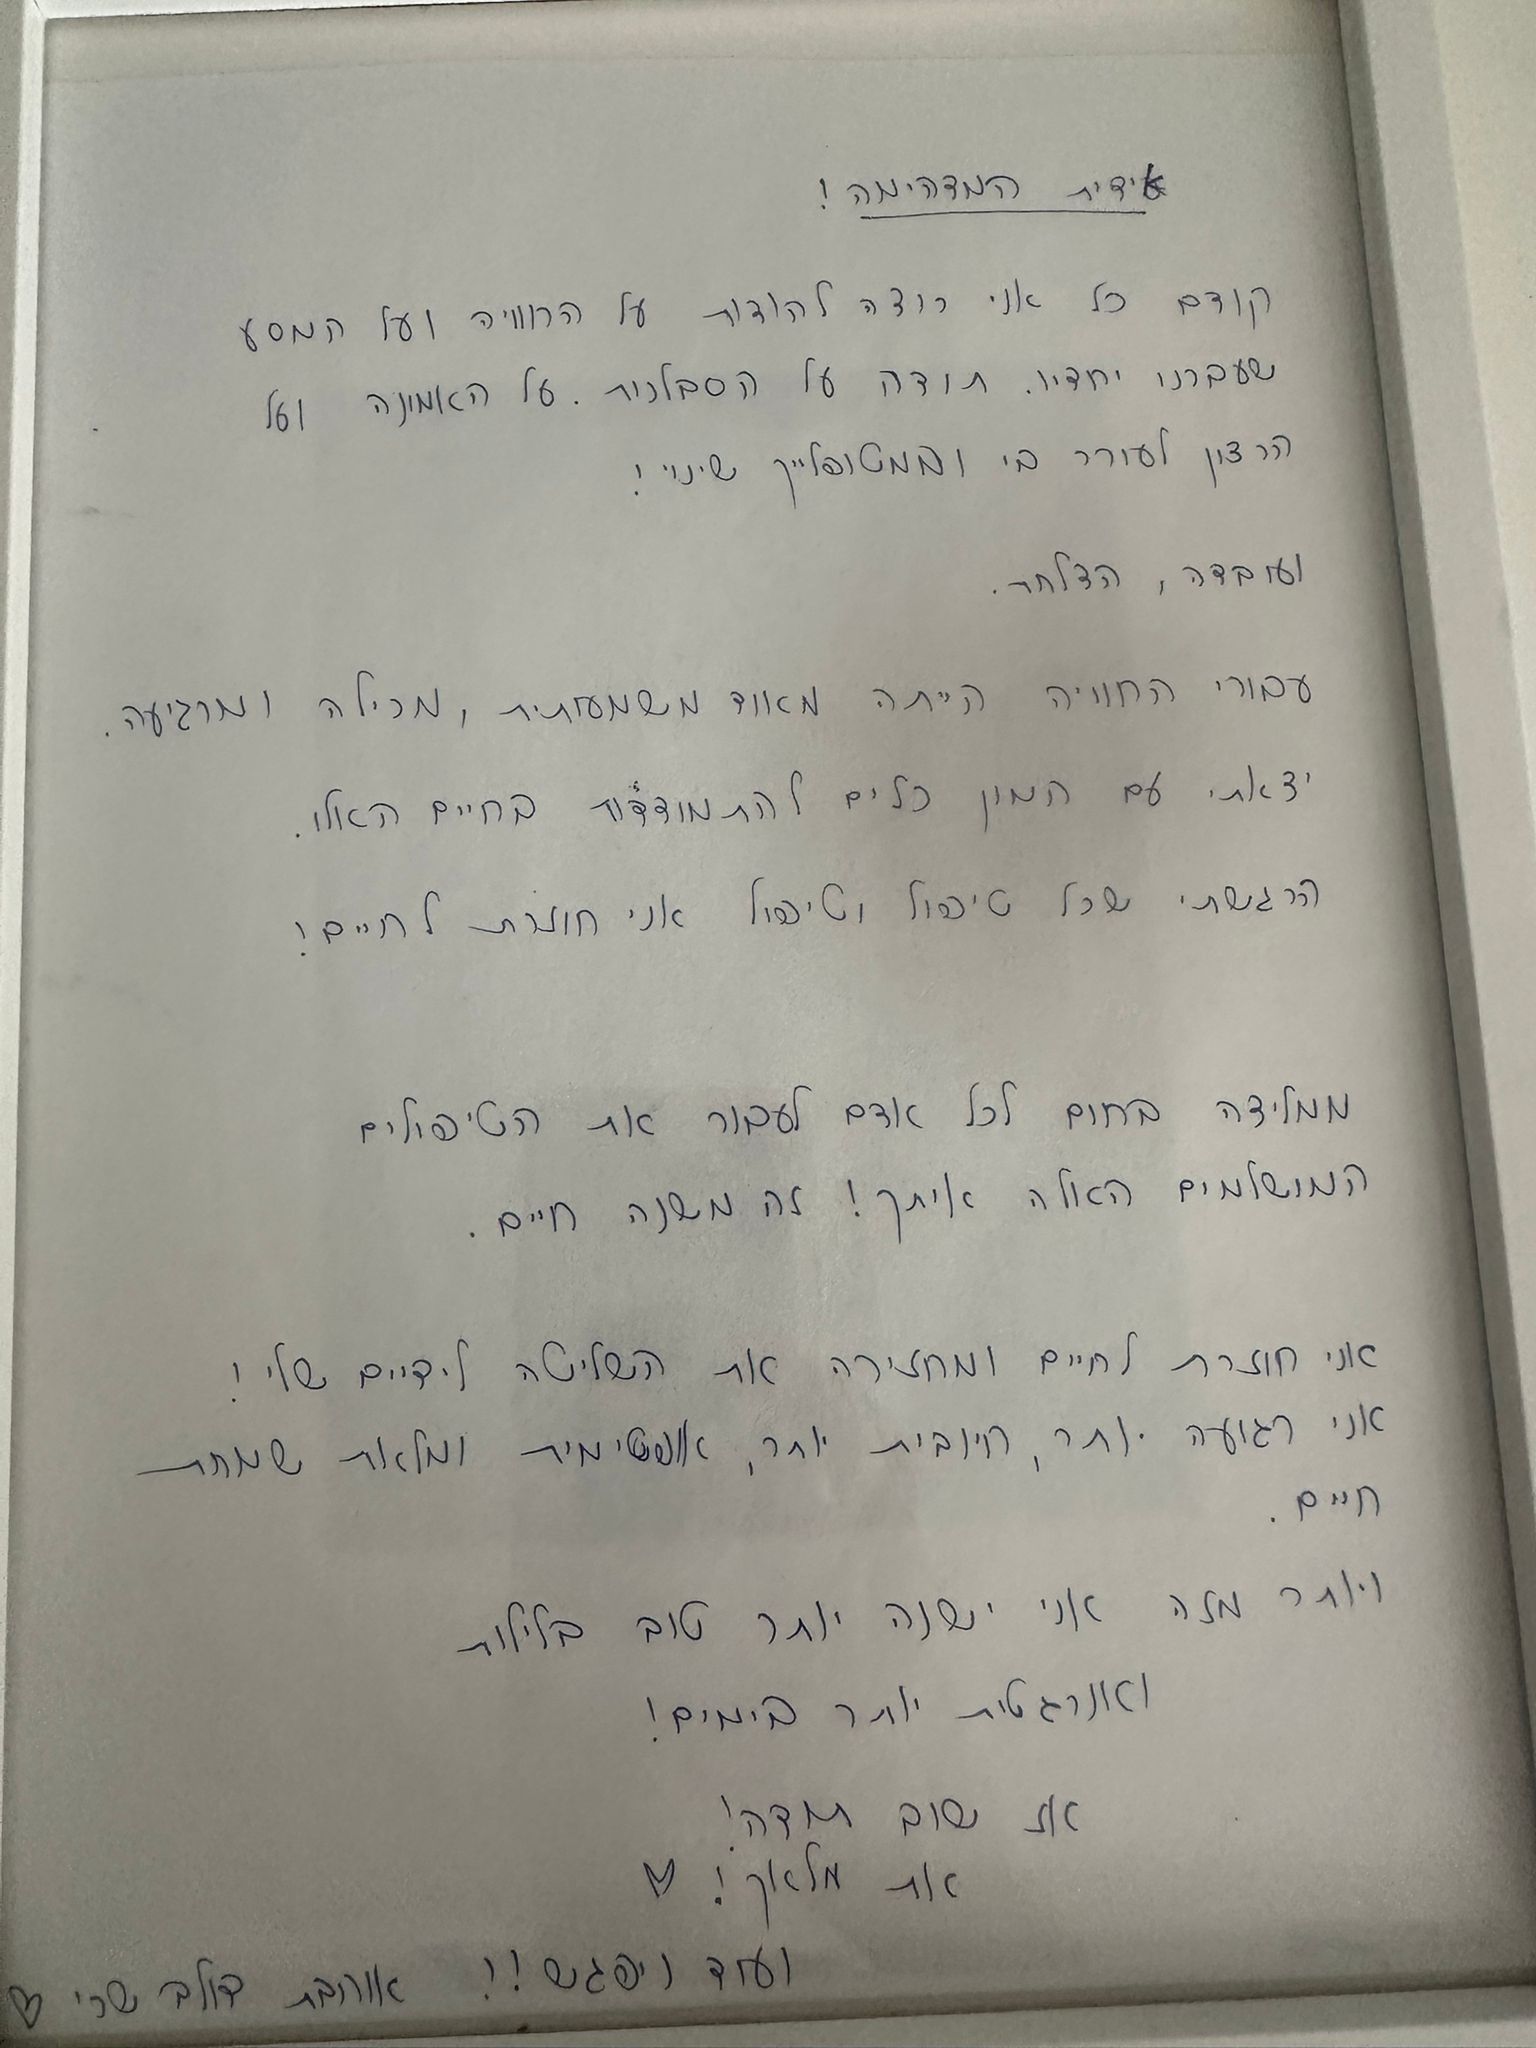 עידית המדהימה!
קודם כל אני רוצה להודות על החוויה ועל המסע
שעברנו יחדיו. תודה על הסבלנות. על האמונה ועל
הרצון לעורר בי ובמטופלייך שינוי!
ועובדה, הצלחת.
עבורי החוויה הייתה מאוד משמעותית, מכילה ומרגיעה.
יצאתי עם המון כלים להתמודדות בחיים האלו.
הרגשתי שכל טיפול וטיפול אני חוזרת לחיים!
ממליצה בחום לכל אדם לעבור את הטיפולים
המושלמים האלה איתך! זה משנה חיים.
אני חוזרת לחיים ומחזירה את השליטה לידיים שלי!
אני רגועה יותר, חיובית יותר, אופטימית ומלאת שמחת
חיים.
ויותר מזה אני ישנה יותר טוב בלילות
ואנרגטית יותר בימים!
אז שוב תודה!
את מלאך! ♡
ועוד ניפגש!! אוהבת שרי ♡